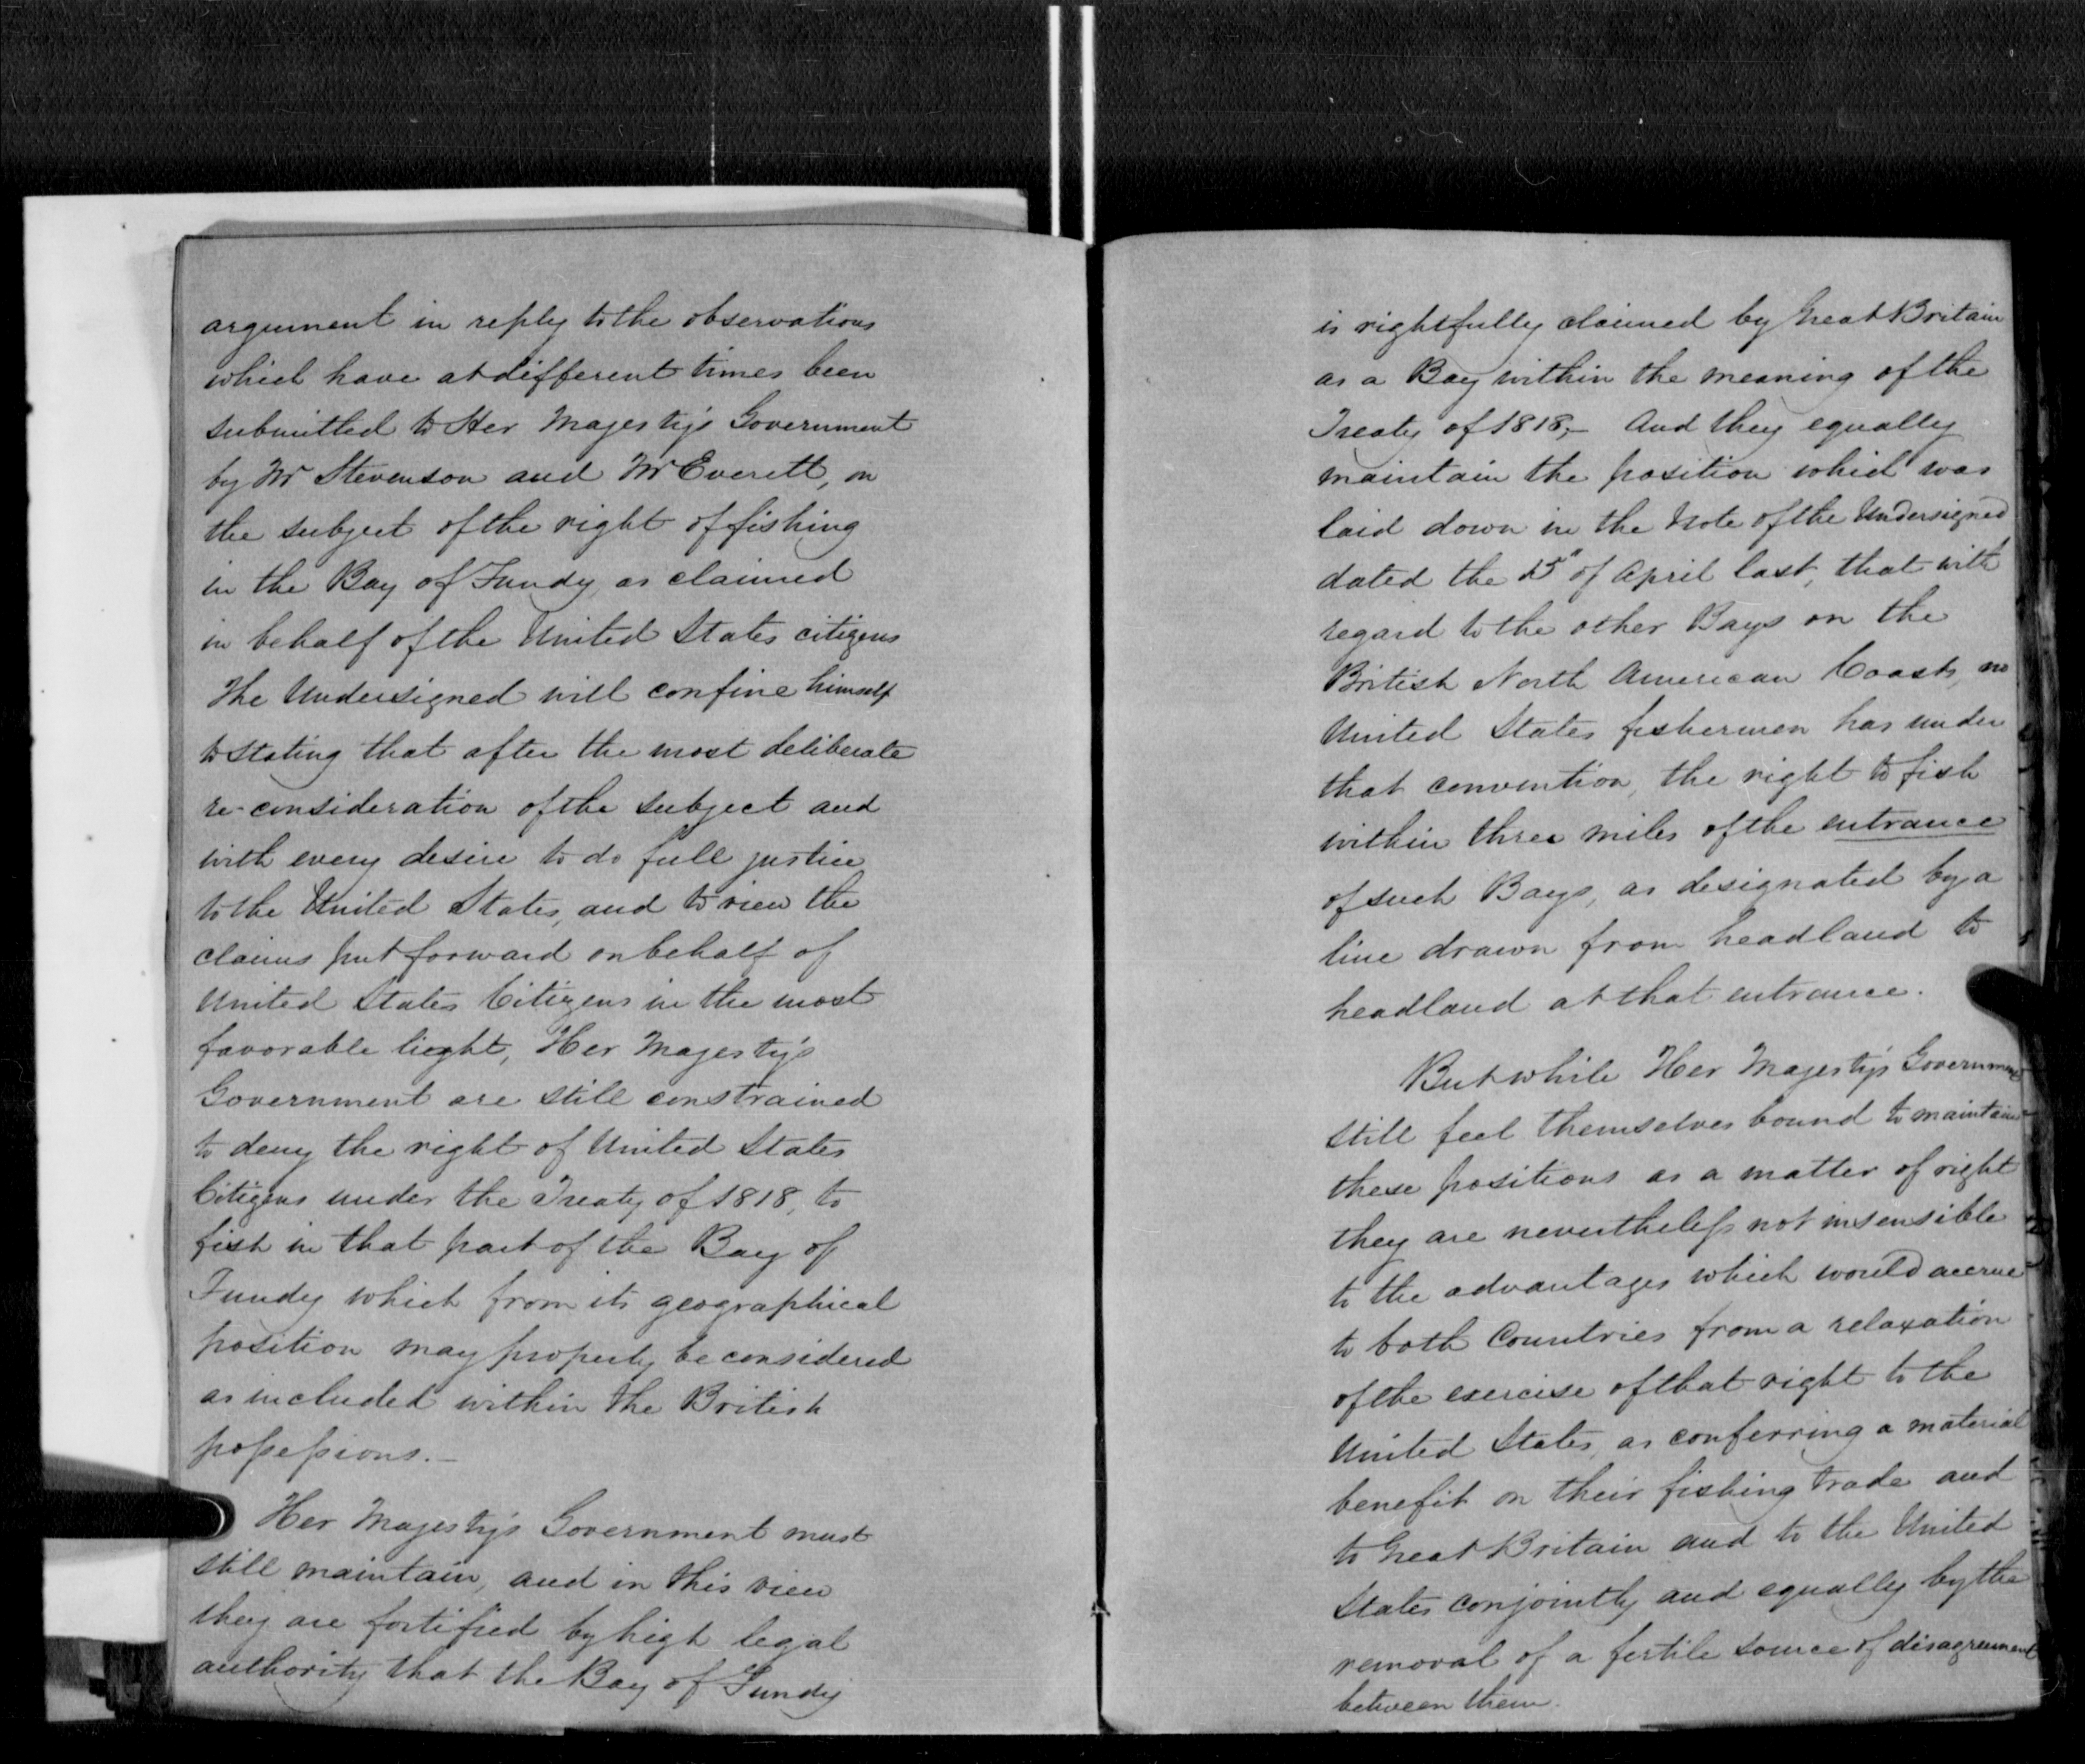 argument in reply to the observations
which have at different times been
submitted to Her Majesty's Government
by Mr Stevenson and Mr Everett, on
the subject of the right of fishing
in the Bay of Fundy, as claimed
in behalf of the United States citizens
The Undersigned will confine himself
to stating that after the most deliberate
re-consideration of the subject and
with every desire to do full justice
to the United States, and to view the
claims put forward on behalf of
United States Citizens in the most
favorable light, Her Majesty's
Government are still constrained
to deny the right of United States
Citizens under the Treaty of 1818, to
fish in that part of the Bay of
Fundy which from its geographical
position may properly be considered
as included within the British
possessions.—
Her Majesty's Government must
still maintain, and in this view
they are fortified by high legal
authority that the Bay of Fundy
is rightfully claimed by Great Britain
as a Bay within the meaning of the
Treaty of 1818,— And they equally
maintain the position which was
laid down in the Note of the Undersigned
dated the of April last, that with
regard to the other Bays on the
British North American Coasts, no
United States fishermen has under
that convention, the right to fish
within three miles of the entrance
of such Bays, as designated by a
line drawn from headland to
headland at that entrance.
But while Her Majesty's Government
still feel themselves bound to maintain
these positions as a matter of right
they are nevertheless not insensible
to the advantages which would accrue
to both Countries from a relaxation
of the exercise of that right to the
United States, as conferring a material
benefit on their fishing trade and
to Great Britain and to the United
States conjointly and equally by the
removal of a fertile source of disagreement
between them.